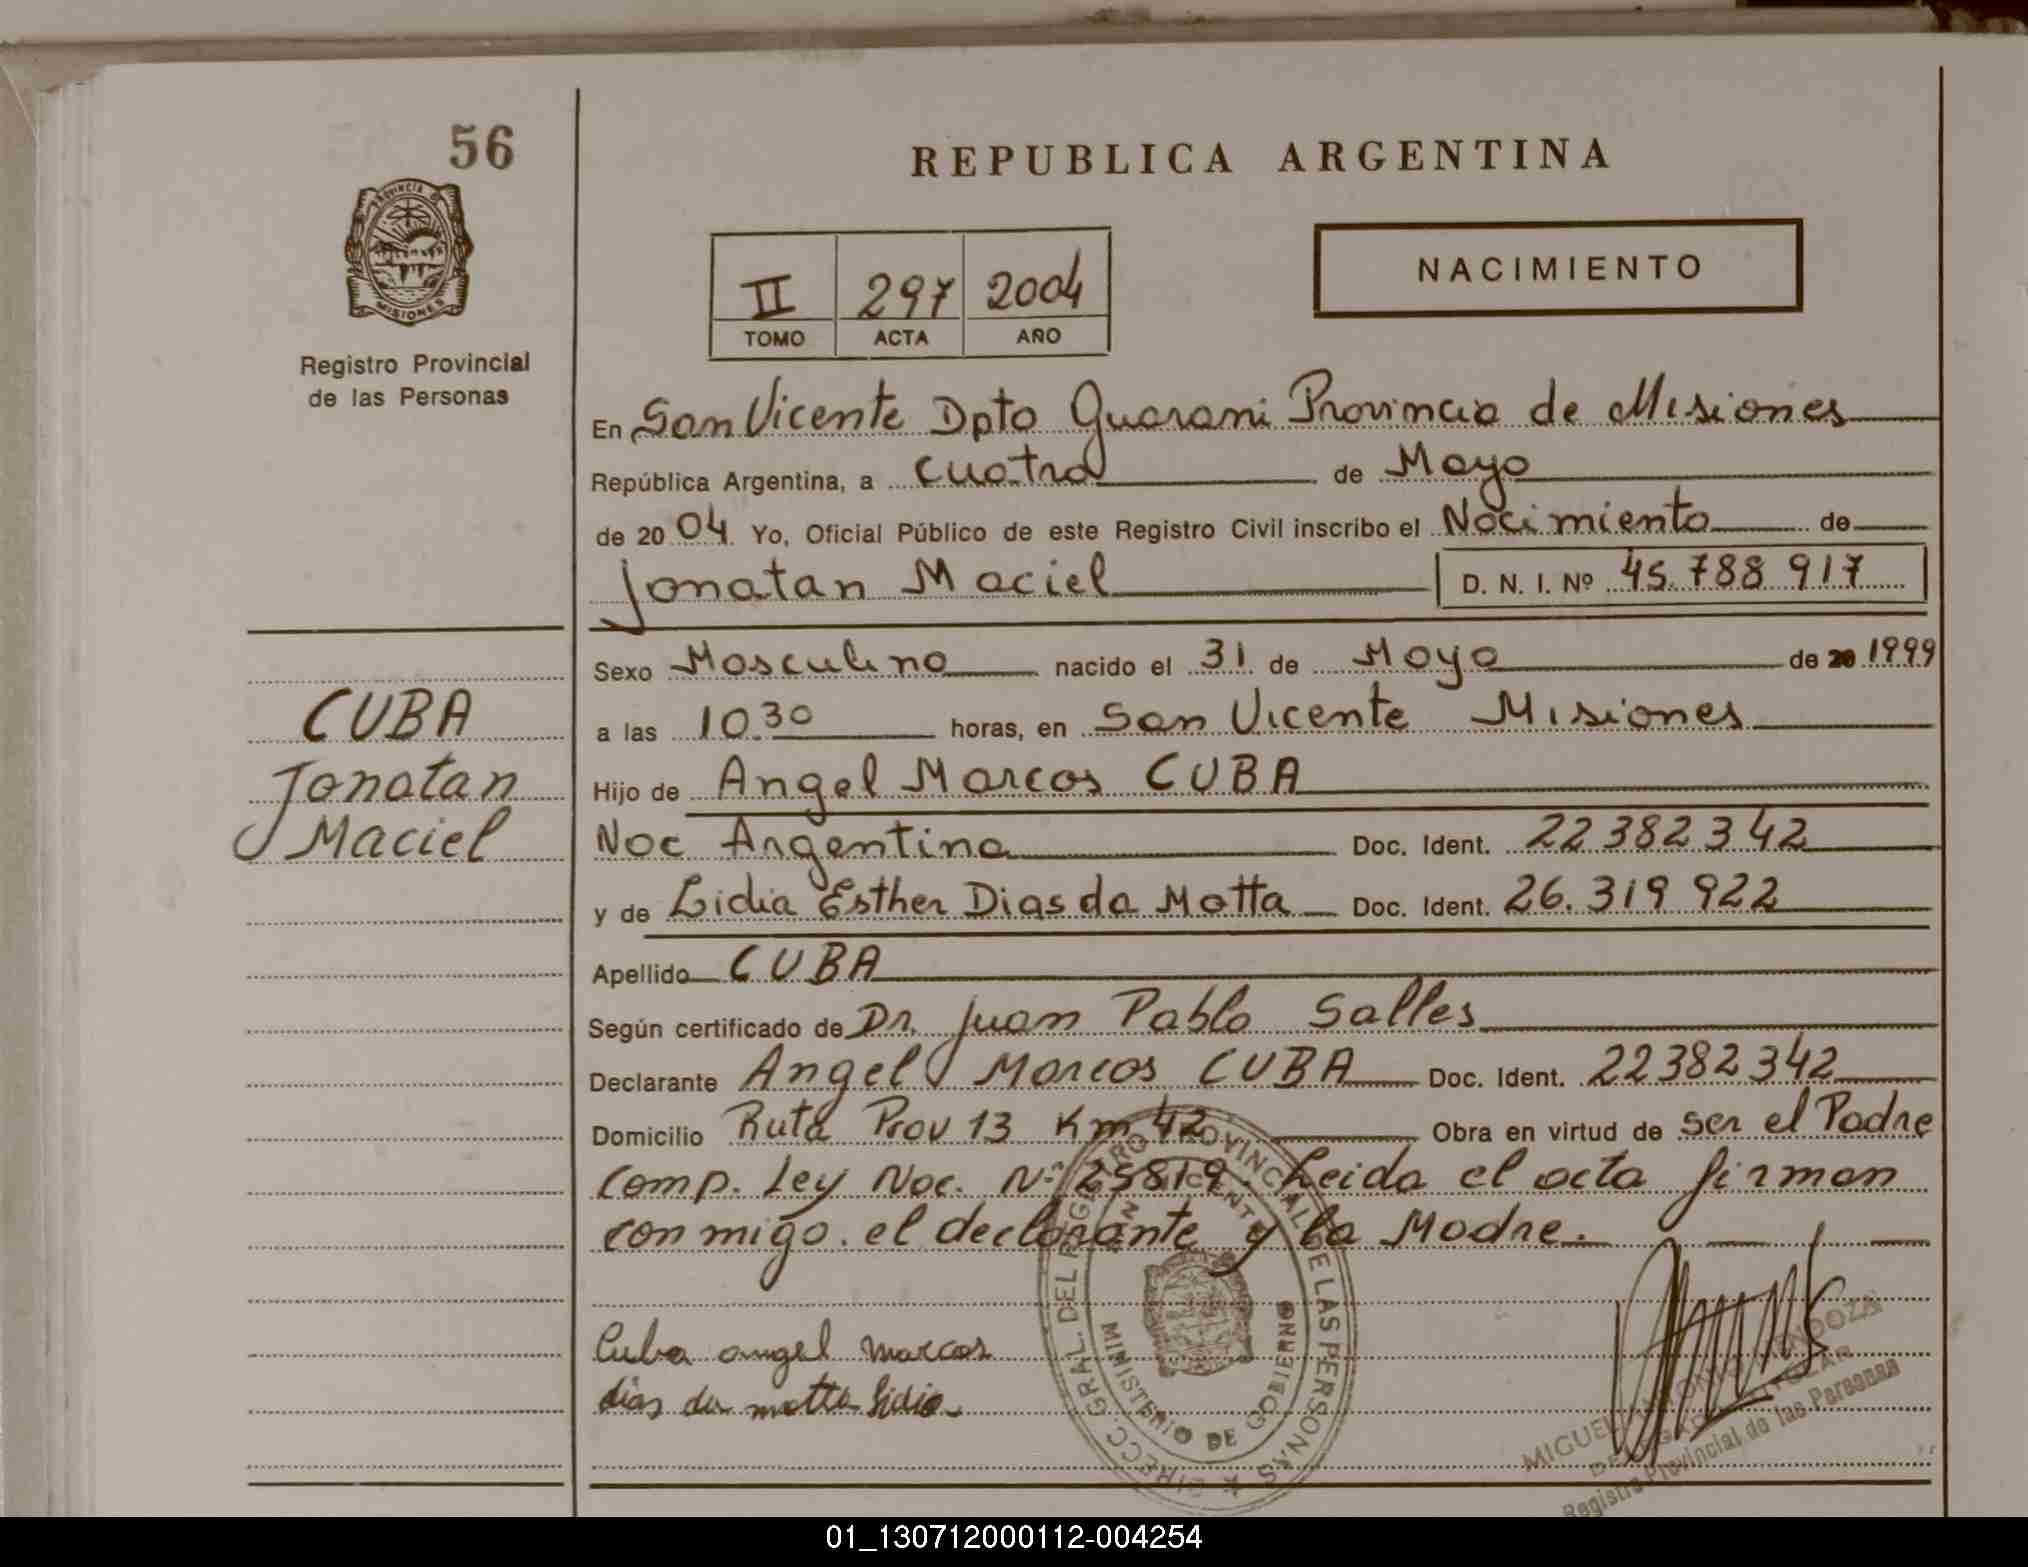 56
REPUBLICA ARGENTINA
PROVINCIA DE
MISIONES
Registro Provincial
de las Personas
II 297 2004
TOMO ACTA AÑO
NACIMIENTO
En San Vicente Dpto Guarani Provincia de Misiones
República Argentina, a cuatro de Mayo
de 2004. Yo, Oficial Público de este Registro Civil inscribo el Nacimiento de
Jonatan Maciel D. N. I. Nº 45.788 917
Sexo Masculino nacido el 31 de Mayo de 20 1999
a las 10.30 horas, en San Vicente Misiones
Hijo de Angel Marcos CUBA
Nac Argentina Doc. Ident. 22 382 342
y de Lidia Esther Dias da Motta Doc. Ident. 26.319 922
Apellido CUBA
Según certificado de Dr. Juan Pablo Salles
Declarante Angel Marcos CUBA Doc. Ident. 22382342
Domicilio Ruta Prov 13 Km 42 Obra en virtud de ser el Padre
Comp. Ley Nac. Nº 25819. Leida el acta firman
conmigo. el declarante y la Madre.
CUBA
Jonatan
Maciel
Cuba angel marcos
dias da motta lidia
DIRECC. GRAL. DEL REGISTRO PROVINCIAL DE LAS PERSONAS
SAN VICENTE
MINISTERIO DE GOBIERNO
MIGUEL ANTONIO MENDOZA
Registro Provincial de las Personas
01_130712000112-004254